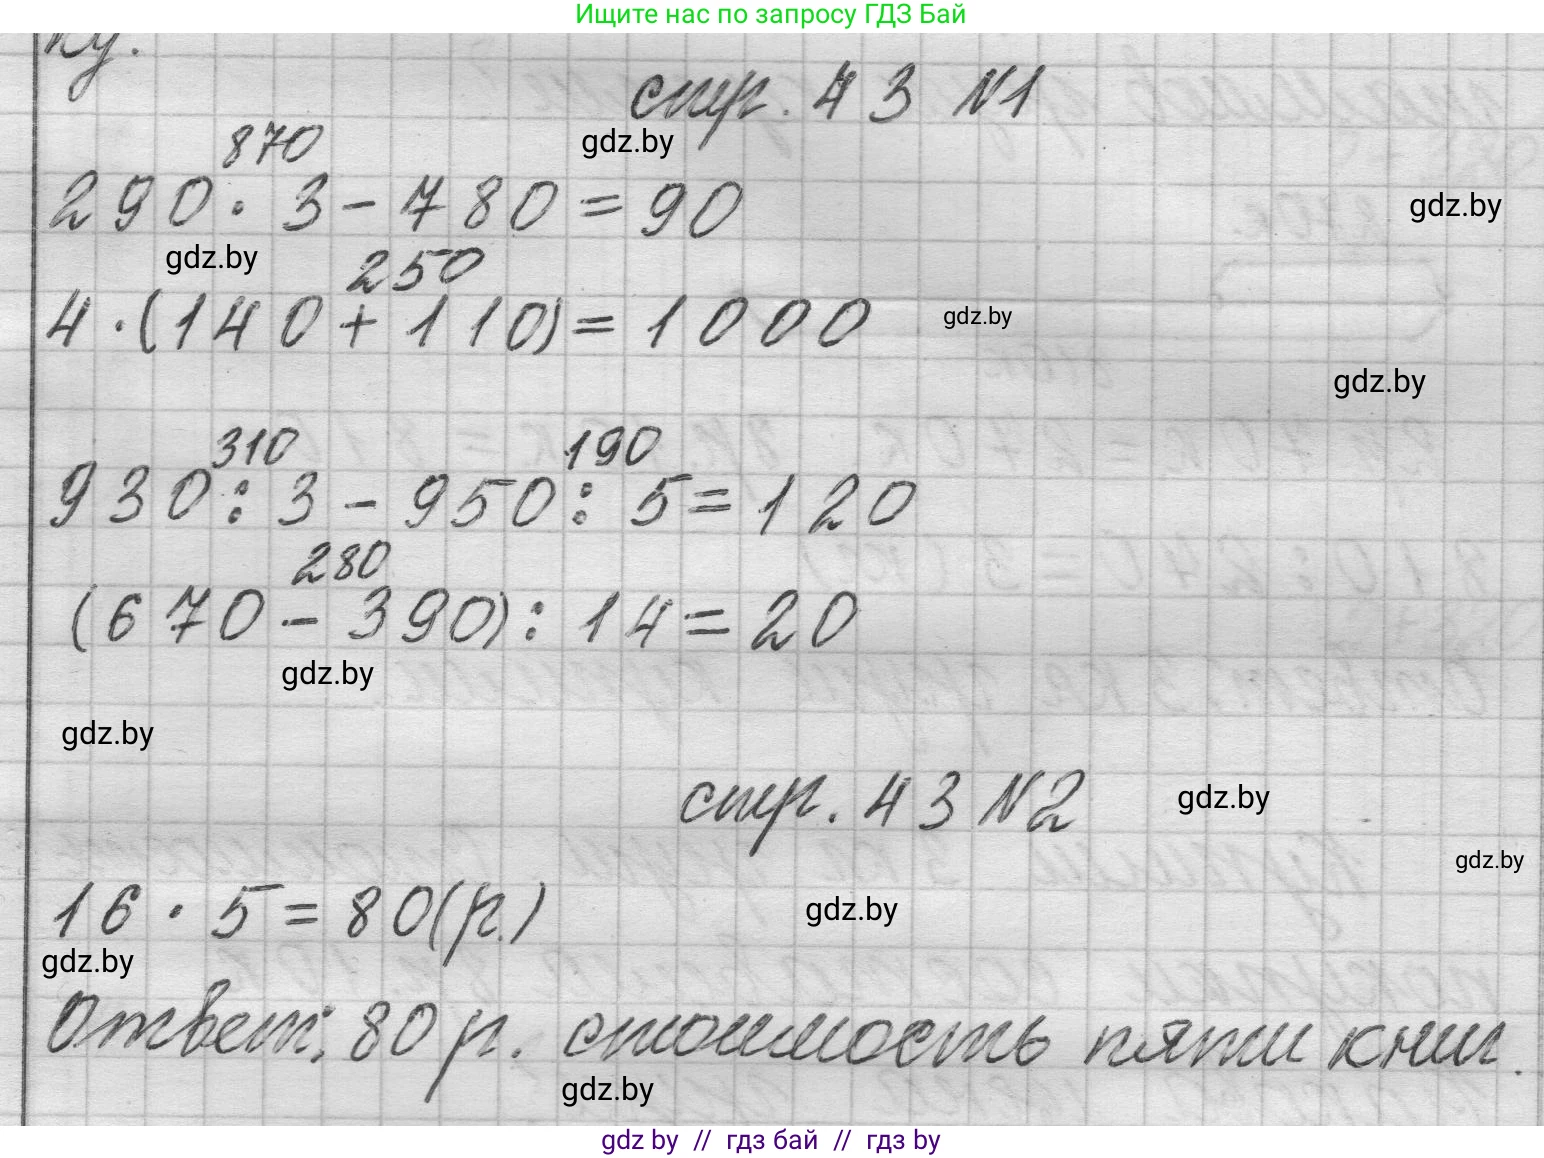 Ищите нас по запросу ГДЗ Бай
ку.
стр. 43 №1
gdz.by
870
290 · 3 - 780 = 90
gdz.by
gdz.by
250
4 · (140 + 110) = 1000
gdz.by
gdz.by
310 190
930 : 3 - 950 : 5 = 120
280
(670 - 390) : 14 = 20
gdz.by
gdz.by
стр. 43 №2
gdz.by
gdz.by
16 · 5 = 80 (р.)
gdz.by
gdz.by
Ответ: 80 р. стоимость пяти книг.
gdz.by
gdz by // гдз бай // гдз by